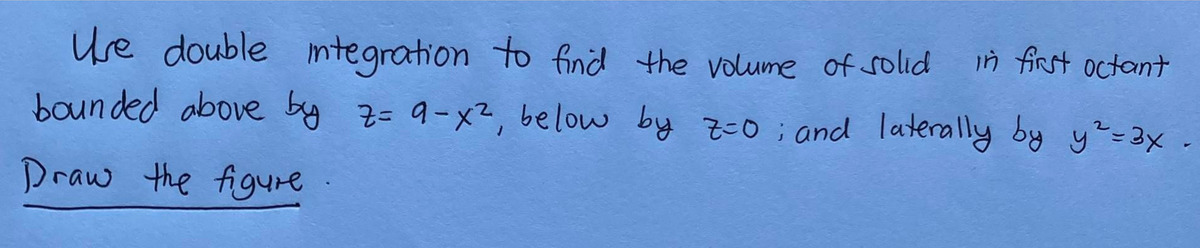 Use double integration to find the volume of solid in first octant
bounded above by z= 9-x², below by z=0 ; and laterally by y²=3x .
Draw the figure .